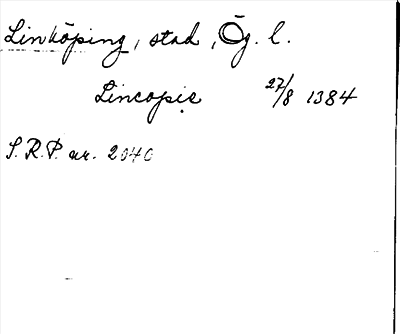 Linköping, stad, Ög. l.
Lincopie 27/8 1384
S.R.P. nr. 2040